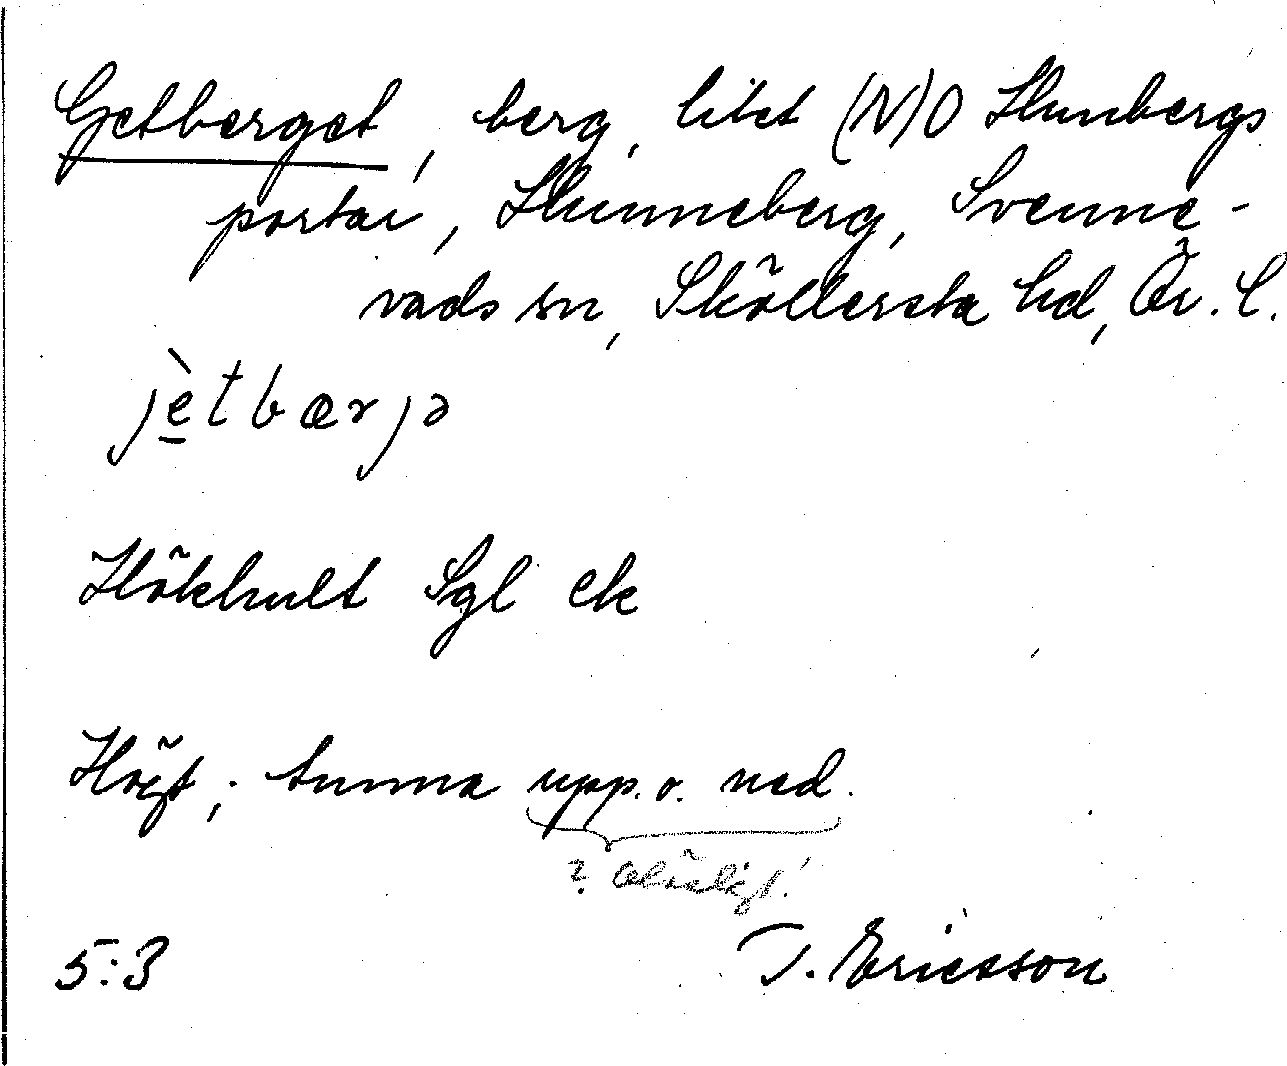 Getberget, berg, litet (N)O Hunbergs
portar, Hunneberg, Svenne-
vads sn, Sköllersta hd, Ör. l.
jètbærjə
Hökhult Sgl ek
Högt; tunna upp. o. ned.
? Oläsligt!
5:3 T. Ericsson